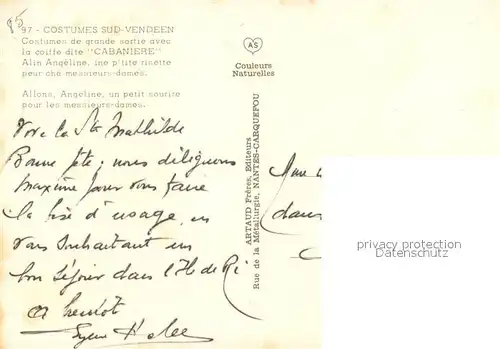 85
97 - COSTUMES SUD-VENDEEN
Costumes de grande sortie avec
la coiffe dite "CABANIERE"
Alin Angèline, ine p'tite risette
pour ché messieurs-dames.
Allons, Angeline, un petit sourire
pour les messieurs-dames.
AS
Couleurs
Naturelles
ARTAUD Frères, Editeurs
Rue de la Métallurgie, NANTES-CARQUEFOU
Vive la Ste Mathilde
Bonne fête; nous déléguons
Maxime pour vous faire
la bise d'usage, en
vous souhaitant un
bon séjour dans l'Ile de Ré
A bientôt
Mme
dans
privacy protection
Datenschutz